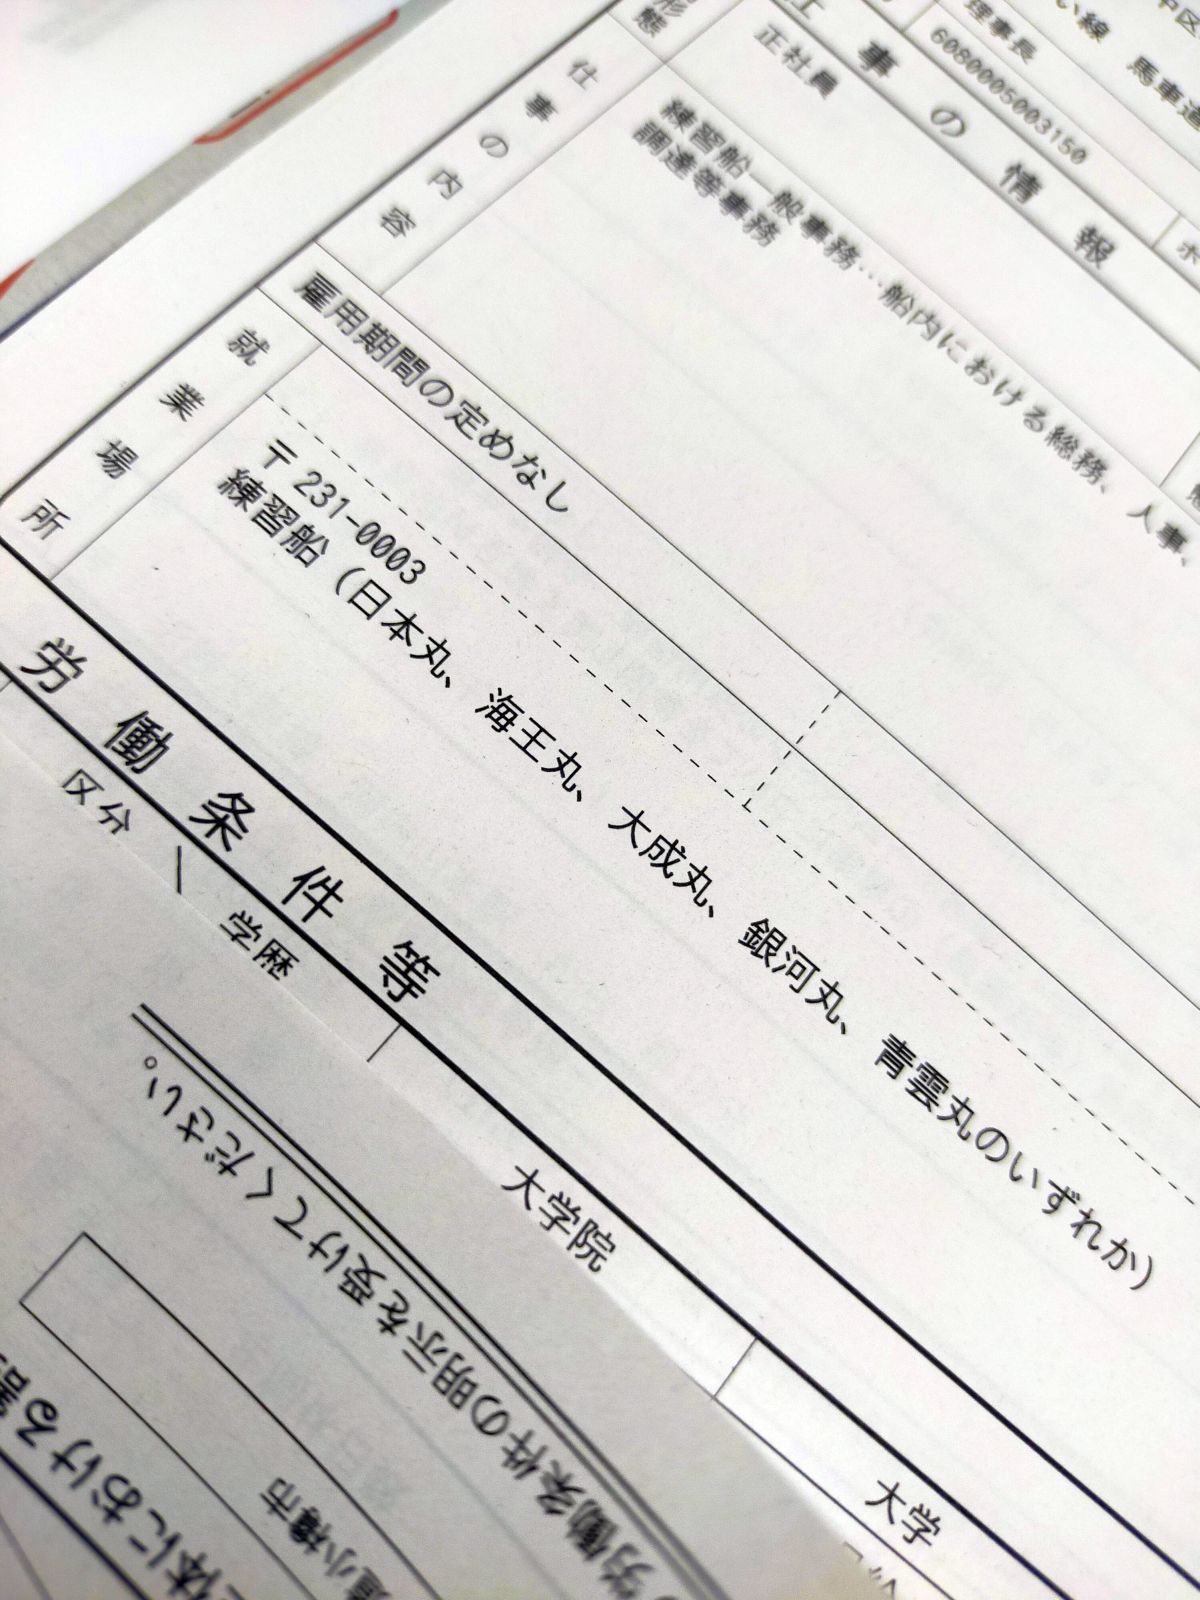 中区
い線 馬車道
理事長
6080005003150
事の情報
形態
正社員
仕事の内容
練習船一般事務…船内における総務、人事、
調達等事務
雇用期間の定めなし
就業場所
〒231-0003
練習船（日本丸、海王丸、大成丸、銀河丸、青雲丸のいずれか）
労働条件等
区分
学歴
大学院
大学
労働条件の明示を受けてください。
小樽市
体における